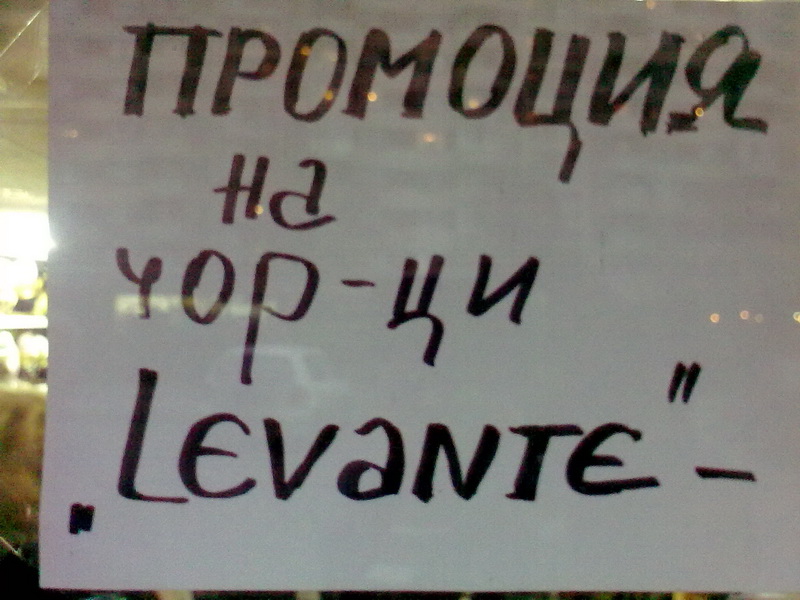 ПРОМОЦИЯ
на
чор-ци
„LEVANTE" -